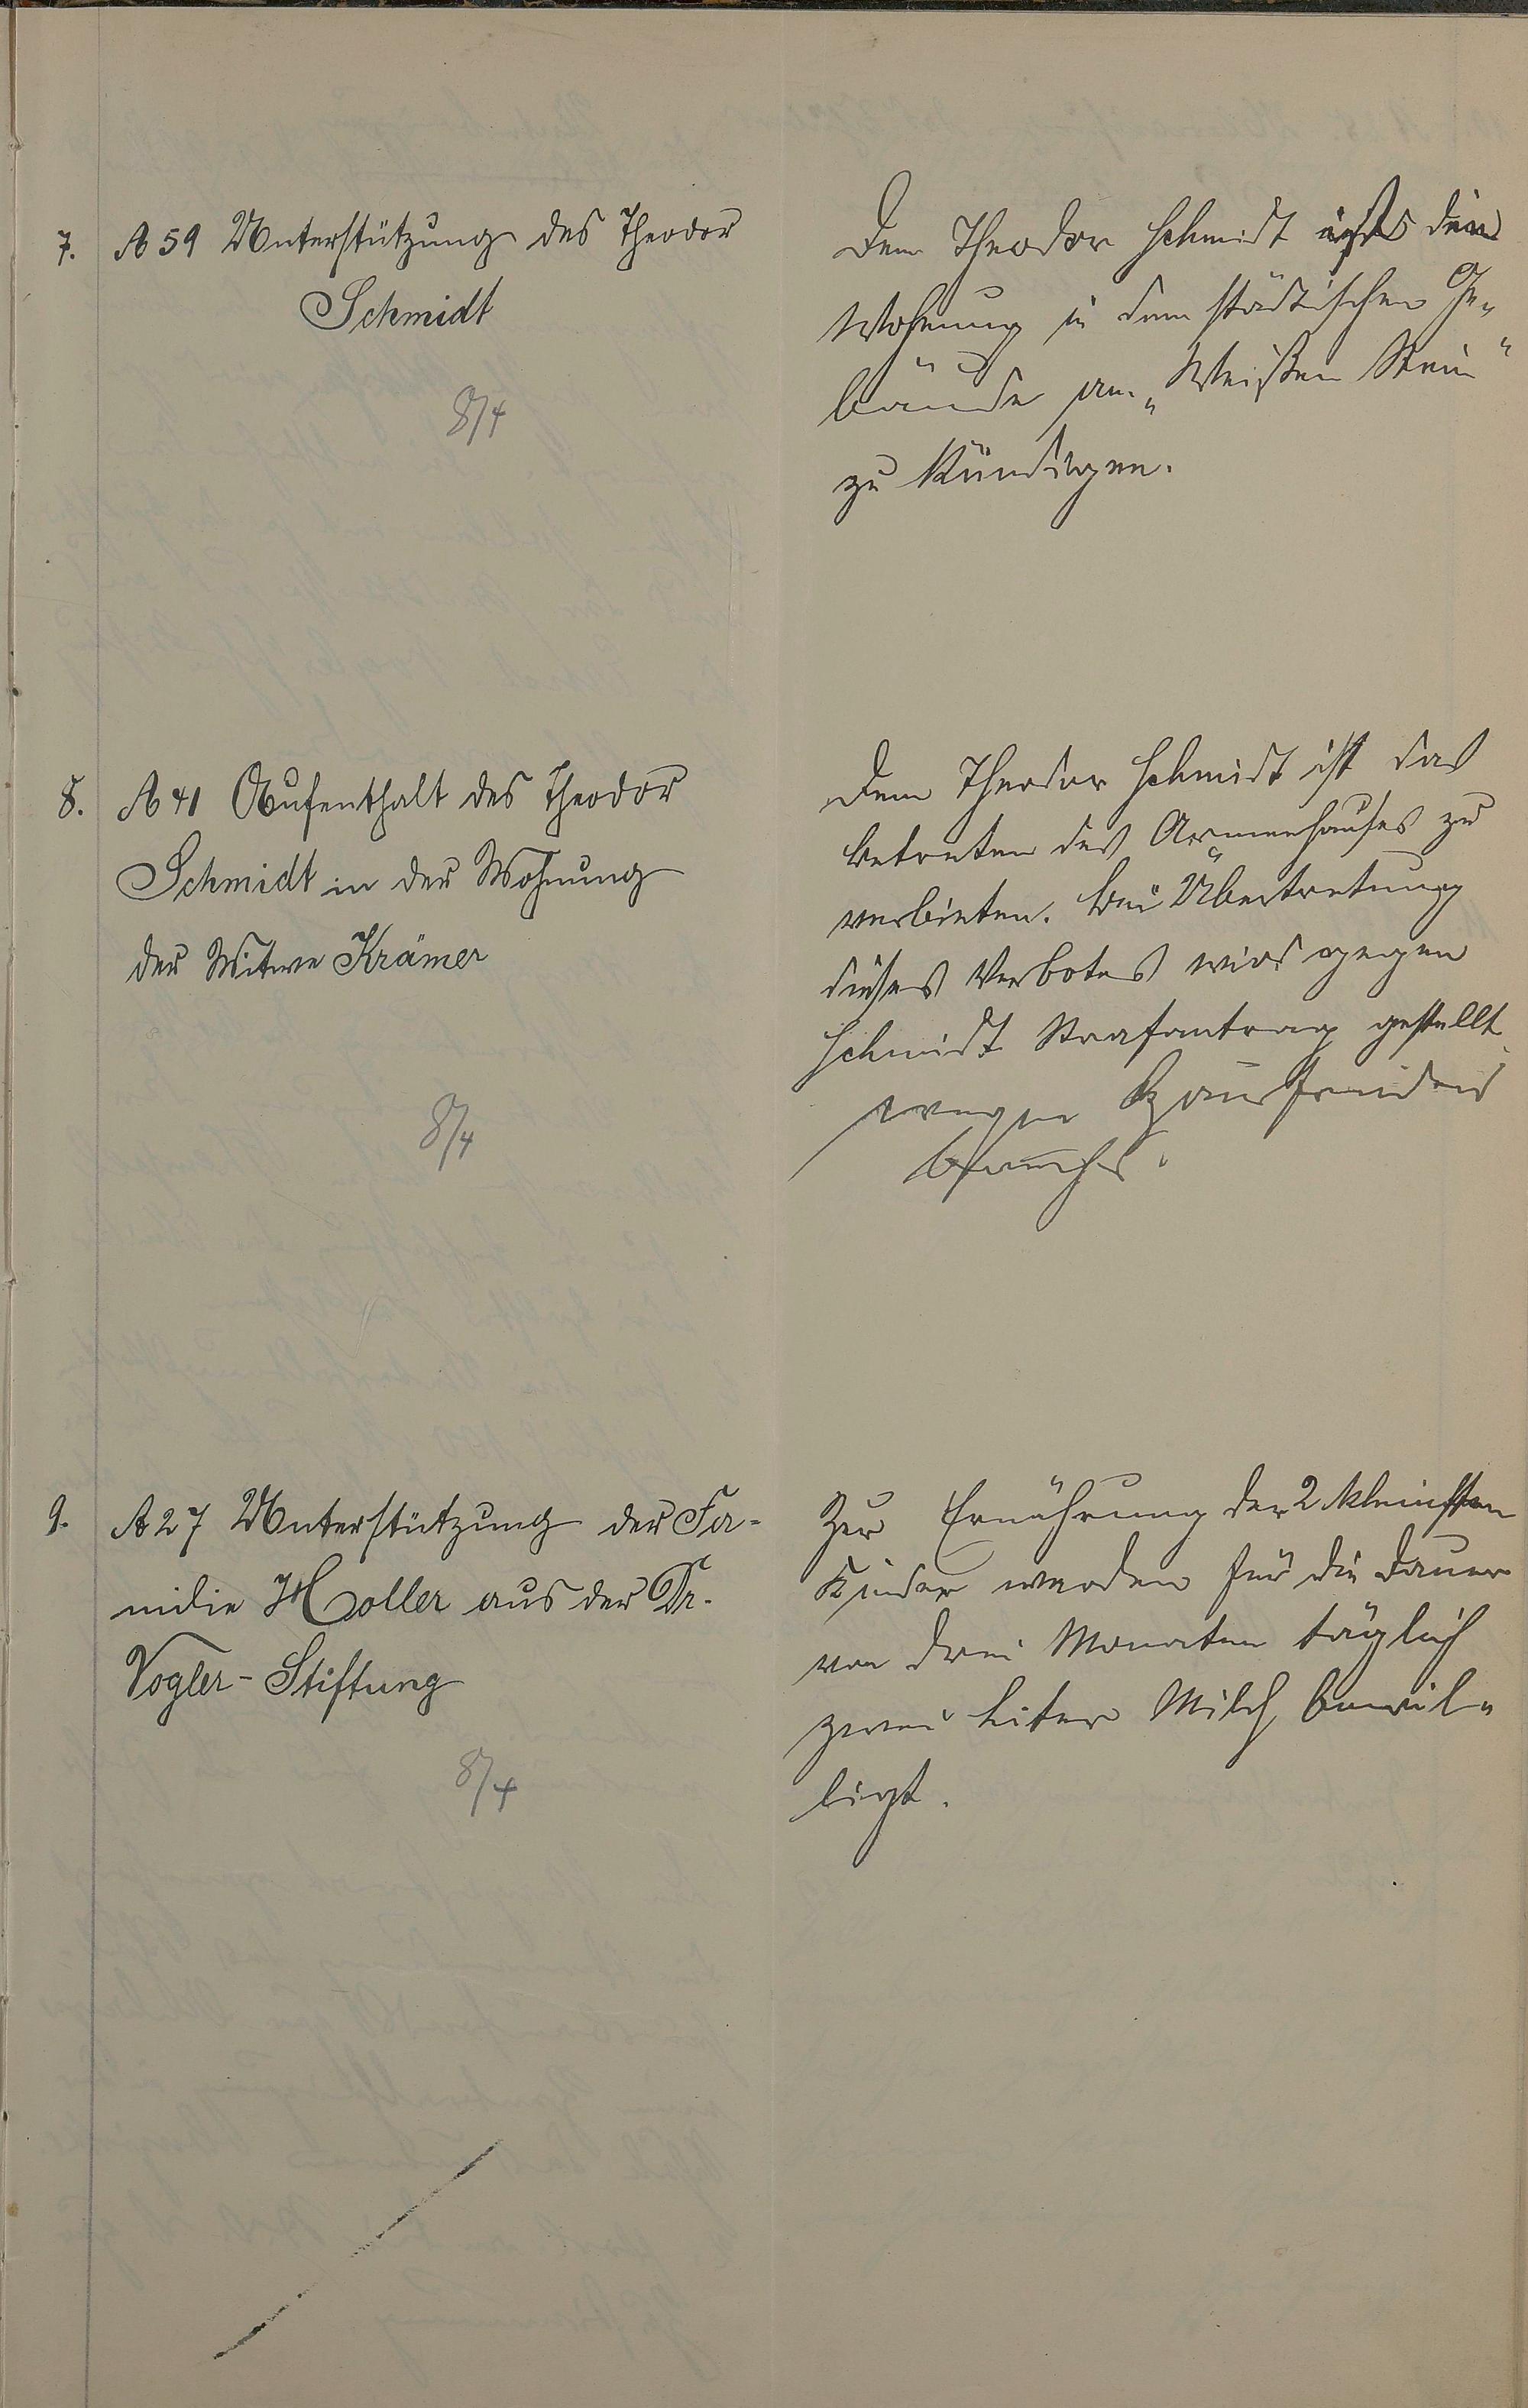 7. A 59 Unterstützung des Theodor
Schmidt
8/4
Dem Theodor Schmidt ist die
Wohnung in dem städtischen Ge-
bäude am „Weißen Stein"
zu kündigen.
8. A 41 Aufenthalt des Theodor
Schmidt in der Wohnung
der Witwe Krämer
8/4
Dem Theodor Schmidt ist das
Betreten des Armenhauses zu
verbieten. Bei Übertretung
dieses Verbotes wird gegen
Schmidt Strafantrag gestellt
wegen Hausfriedens
bruchs.
9. A 27 Unterstützung der Fa-
milie Holler aus der Dr.
Vogler-Stiftung
8/4
Zur Ernährung der 2 kleinsten
Kinder werden für die Dauer
von drei Monaten täglich
zwei Liter Milch bewil-
ligt.